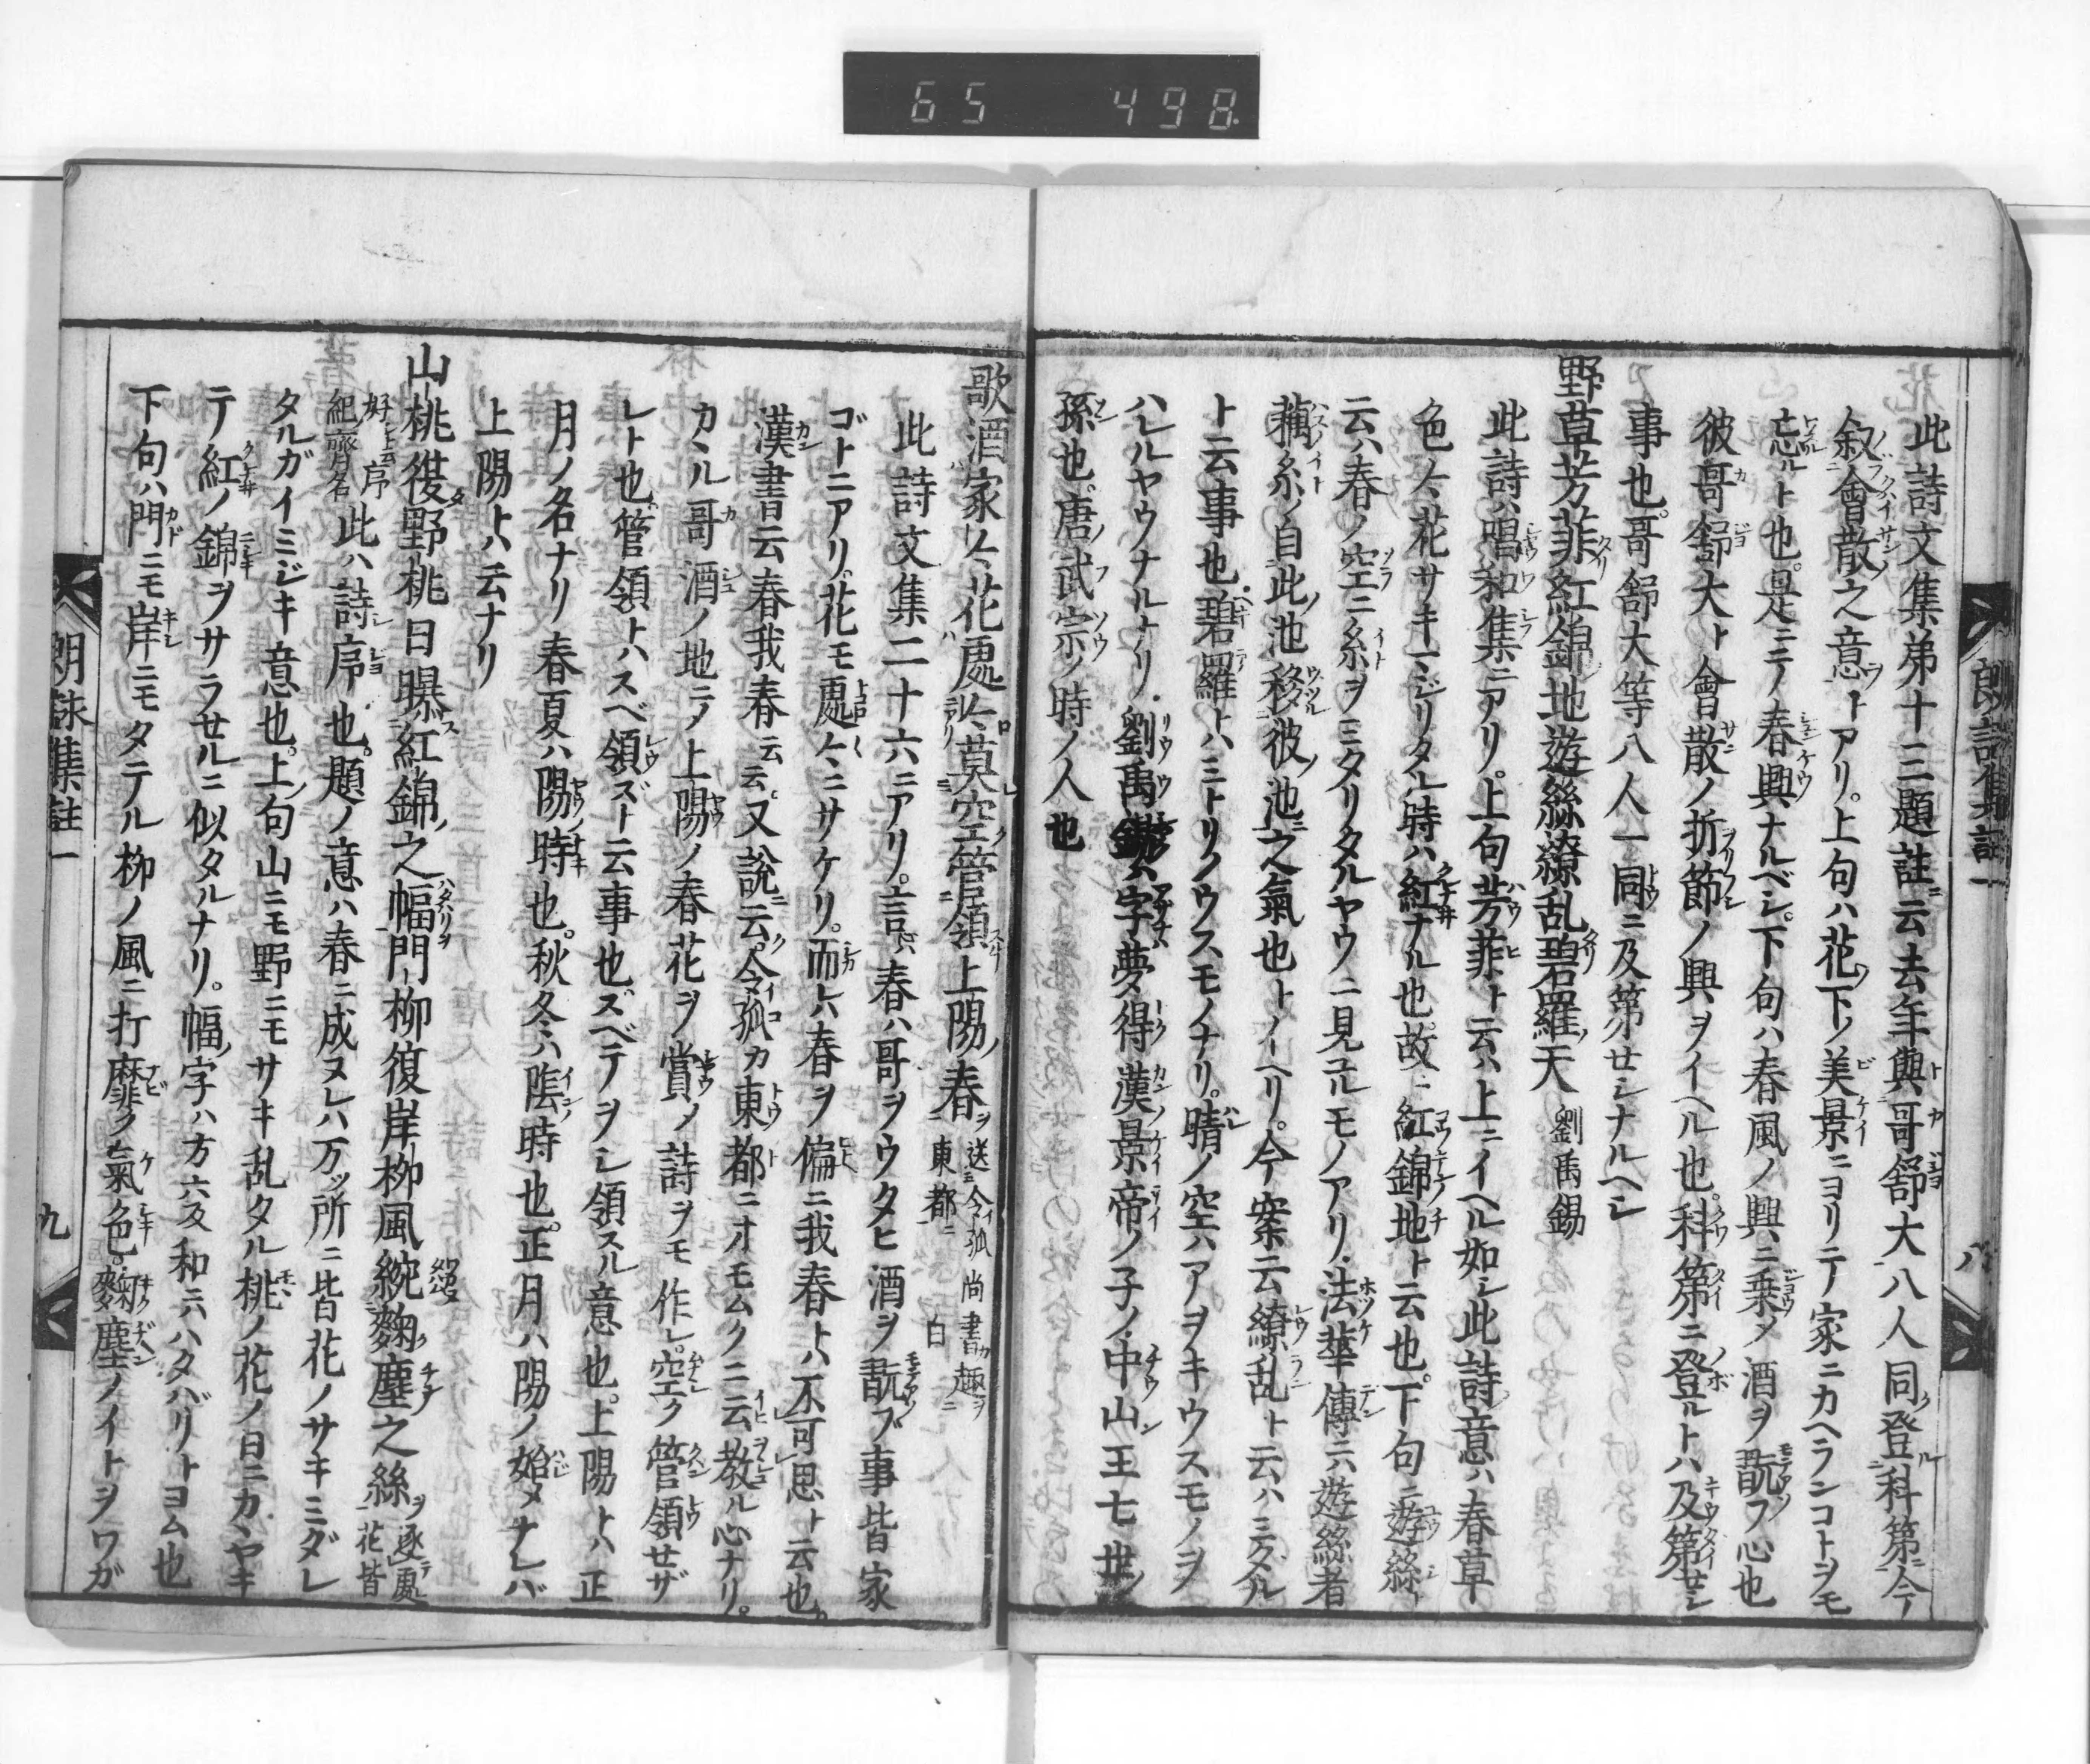 65 498
朗詠集註一
八
此詩文集第十三題註云去年與哥舒大八人同登科第今
叙會散之意トアリ上句ハ花下ノ美景ニヨリテ家ニカヘランコトヲモ
忘ルト也是ニテノ春興ナルベシ下句ハ春風ノ興ニ乗メ酒ヲ翫フ心也
彼哥舒大ト會散ノ折節ノ興ヲイヘル也科第ニ登ルトハ及第セシ
事也哥舒大等八人一同ニ及第セシナルヘシ
野草芳菲紅錦地遊絲繚乱碧羅天 劉禹錫
此詩ハ唱和集ニアリ上句芳菲ト云ハ上ニイヘル如シ此詩意ハ春草
色々花サキマジリタル時ハ紅ナル也故ニ紅錦地ト云也下句ニ遊絲ト
云ハ春ノ空ニ糸ヲミタリタルヤウニ見ユルモノアリ法華傳ニ六遊絲者
藕糸ノ自此ノ池移彼ノ池ニ之氣也トイヘリ今案ニ云繚乱ト云ハミダル
ト云事也碧羅トハミトリノウスモノナリ晴ノ空ハアヲキウスモノヲ
ハレルヤウナルトナリ劉禹錫ハ字夢得漢景帝ノ子ノ中山王七世ノ
孫也唐ノ武宗ノ時ノ人也
歌酒家々花處々莫空管領上陽春 送令狐尚書趣
東都 白
此詩文集二十六ニアリ言ハ春ハ哥ヲウタヒ酒ヲ翫ブ事皆家
ゴトニアリ花モ處々ニサケリ而ルヲ春ヲ偏ニ我春トハ不可思ト云也
漢書云春我春云云又說云令狐カ東都ニオモムクニ云教ル心ナリ
カヽル哥酒ノ地ニノ上陽ノ春花ヲ賞ノ詩ヲモ作レ空ク管領セザ
レト也管領トハスベ領ズト云事也ズベテヲシ領スル意也上陽トハ正
月ノ名ナリ春夏ハ陽時也秋冬ハ陰時也正月ハ陽ノ始メナレバ
上陽トハ云ナリ
山桃復野桃日曝紅錦之幅門柳復岸柳風綩麹塵之絲 逐處花皆
好ト云序
紀齊名
此ハ詩序也題ノ意ハ春ニ成ヌレハ万ツ所ニ皆花ノサキミダレ
タルガイミジキ意也上句山ニモ野ニモサキ乱タル桃ノ花ノ日ニカヽヤキ
テノ紅ノ錦ヲサラせルニ似タルナリ幅ノ字ハ方六反和ニハタバリトヨム也
下句ハ門ニモ岸ニモタテル柳ノ風ニ打靡ク氣色麹塵ノイトヲワガ
朗詠集註一
九